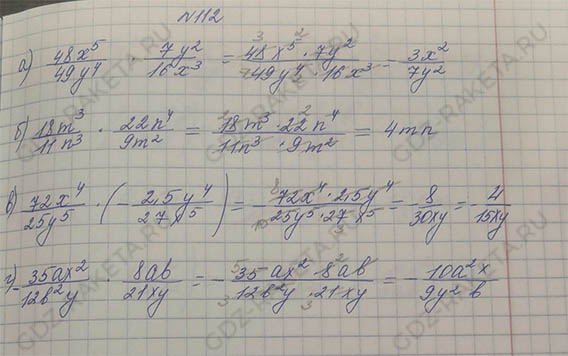 №112
а) 48x⁵/49y⁴ · 7y²/16x³ = 48x⁵ · 7y²/49y⁴ · 16x³ = 3x²/7y²
б) 18m³/11n³ · 22n⁴/9m² = 18m³ · 22n⁴/11n³ · 9m² = 4mn
в) 72x⁴/25y⁵ · (- 2,5y⁴/27x⁵) = - 72x⁴ · 2,5y⁴/25y⁵ · 27x⁵ = - 8/30xy = - 4/15xy
г) - 35ax²/12b²y · 8ab/21xy = - 35ax² · 8ab/12b²y · 21xy = - 10a²x/9y²b
GDZ-RAKETA.RU